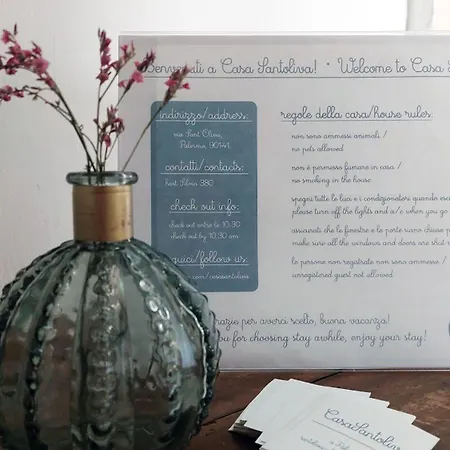 Benvenuti a Casa Santoliva! * Welcome to Casa S
indirizzo/address:
via Sant'Oliva,
Palermo, 90141.
contatti/contacts:
380
check out info:
check out entro le 10:30
check out by 10:30 am
guici/follow us:
.com/casasantoliva
regole della casa/house rules:
non sono ammessi animali /
no pets allowed
non è permesso fumare in casa /
no smoking in the house
spegni tutte le luci e i condizionatori quando esci
please turn off the lights and a/c when you go
assicurati che le finestre e le porte siano chiuse
make sure all the windows and doors are shut
le persone non registrate non sono ammesse /
unregistered guest not allowed
razie per averci scelto, buona vacanza!
ou for choosing stay awhile, enjoy your stay!
CasaSantoliva